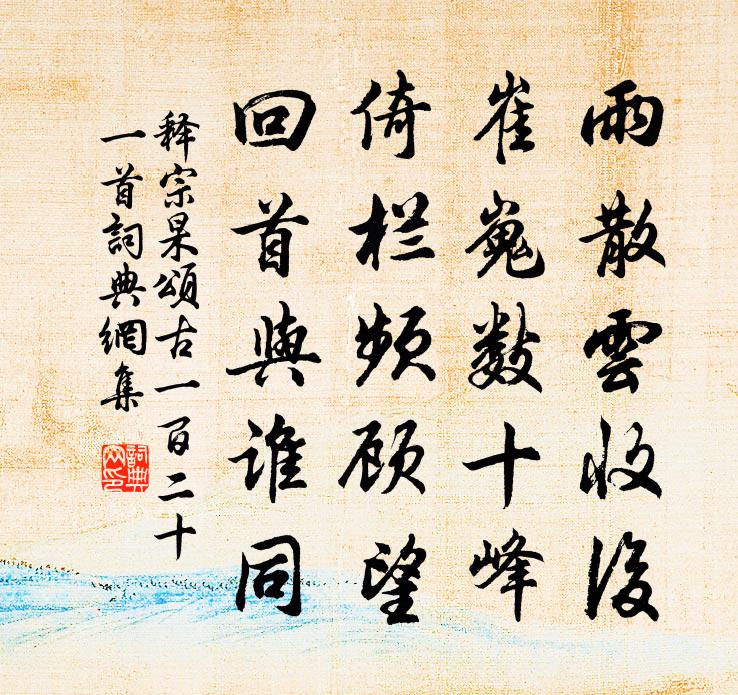 雨散雲收後
崔嵬數十峰
倚栏頻顾望
回首與誰同
释宗杲頌古一百二十
一首詞典網集
詞典
网印